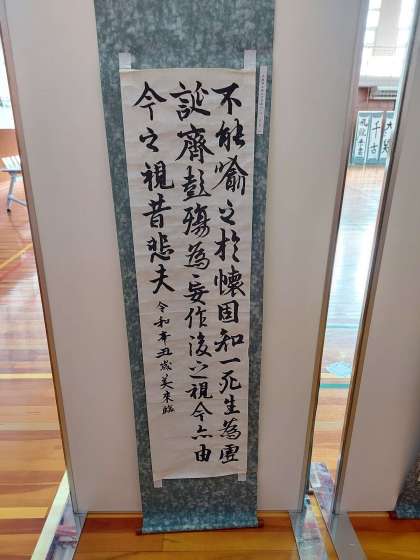 不能喻之於懷固知一死生為虛
誕齊彭殤為妄作後之視今亦由
今之視昔悲夫
令和辛丑歳美来臨
千古